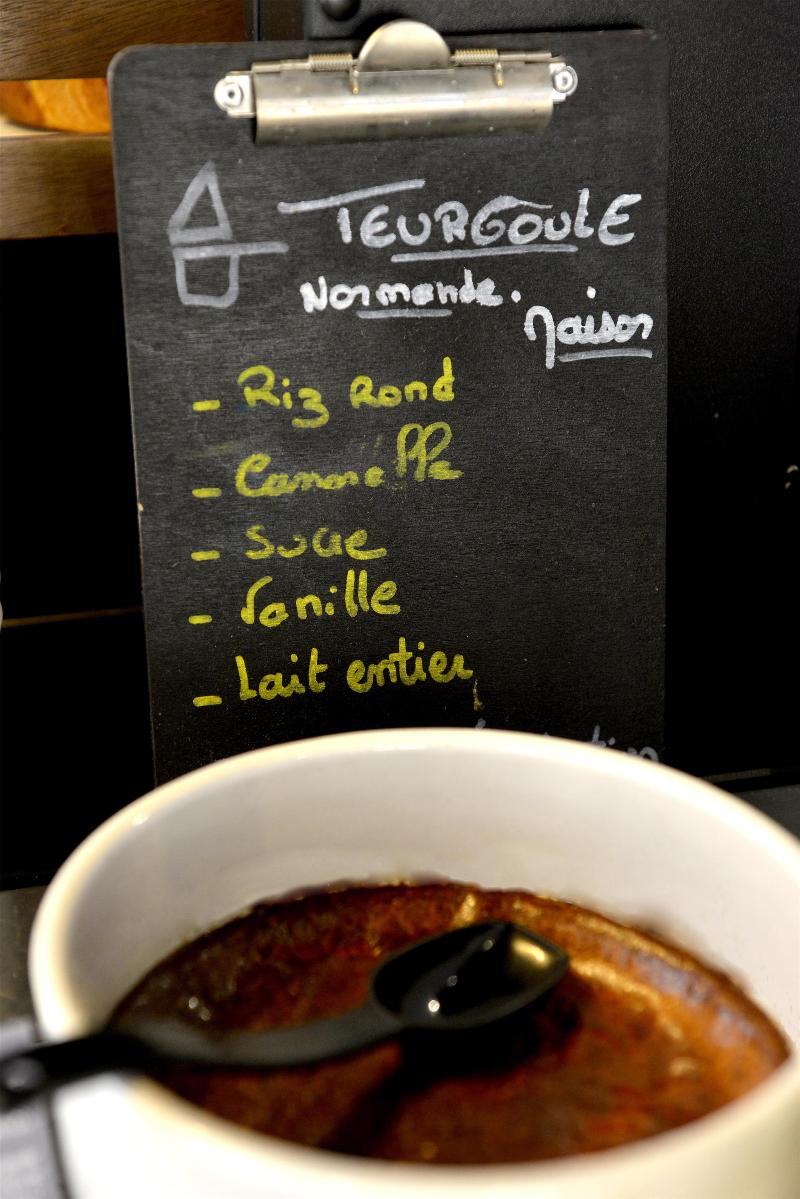 TEURGOULE
Normande.
Maison
- Riz Rond
- Cannelle
- Sucre
- Vanille
- Lait entier